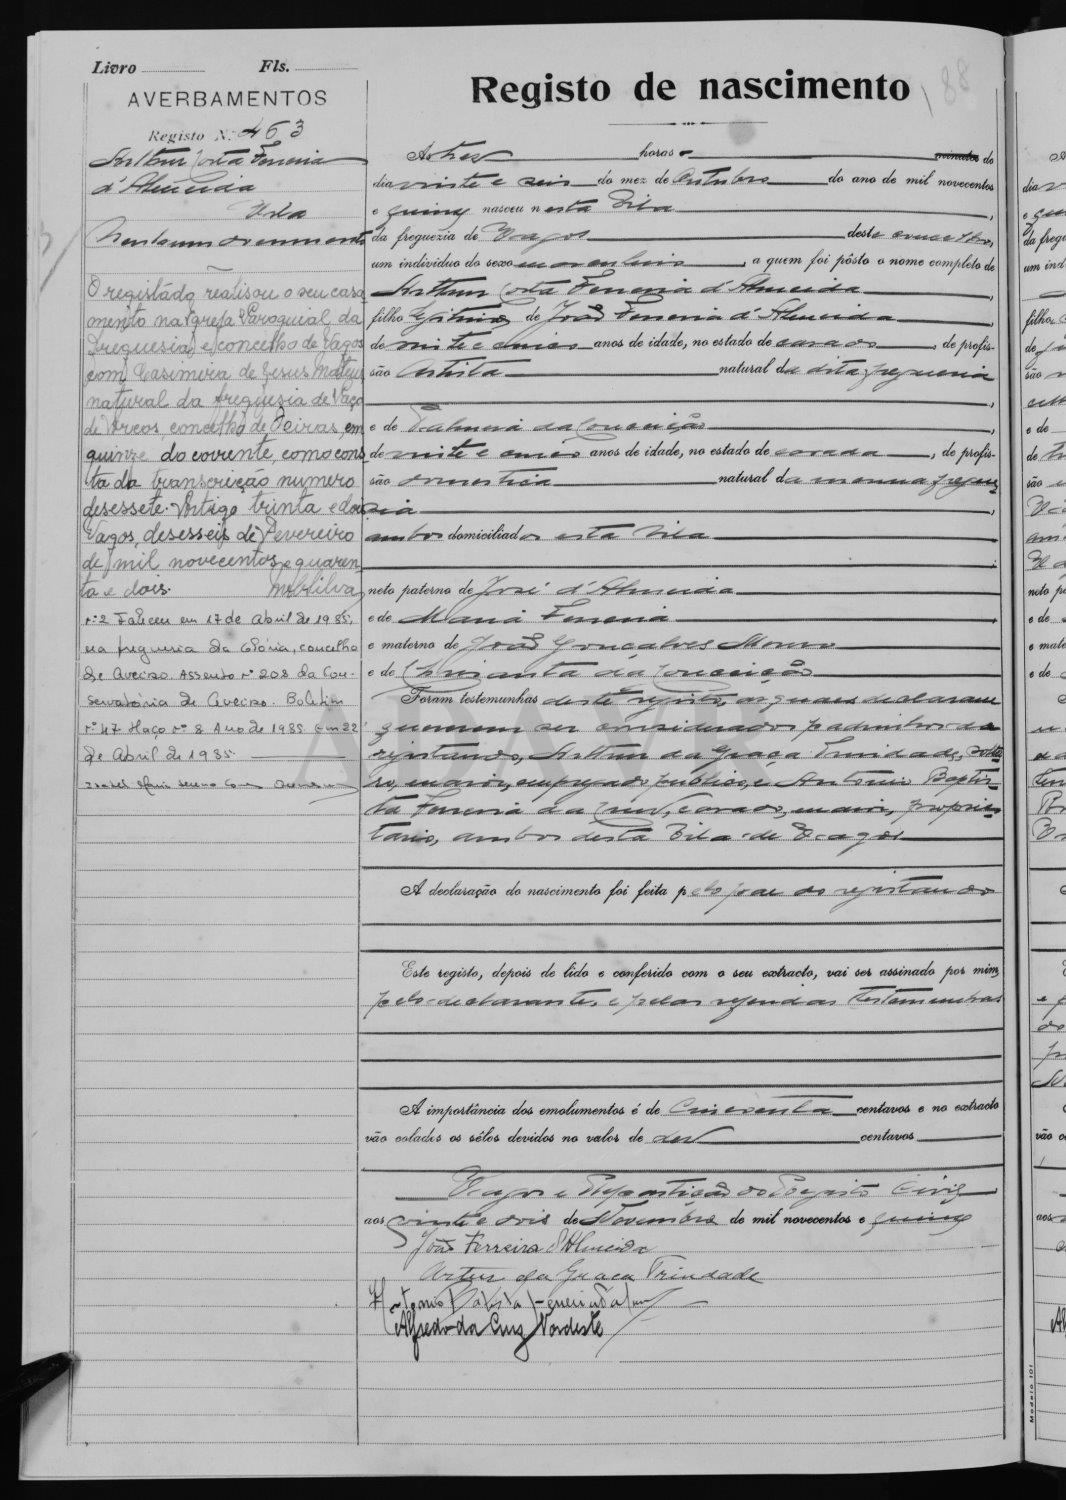 Livro Fls.
AVERBAMENTOS
Registo N.º 463
Arthur Costa Ferreira
d'Almeida
Vila
Nenhum documento
O registádo realisou o seu casa
mento na Igreja Paroquial da
freguesia e concelho de Vagos
com Casimira de Jesus Mateus
natural da freguesia de Paço
de Arcos, concelho de Oeiras, em
quinze do corrente, como cons
ta da transcrição numero
desessete. Artigo trinta e dois
Vagos, desesseis de Fevereiro
de mil novecentos e quaren
ta e dois.
nº 2 Faleceu em 17 de Abril de 1985,
na freguesia da Glória, concelho
de Aveiro. Assento nº 208 da Con-
servatória de Aveiro. Boletim
nº 47 Maço nº 8 Ano de 1985 Em 22
de Abril de 1985.
Registo de nascimento
188
A's tres horas e minutos do
dia vinte e seis do mez de Outubro do ano de mil novecentos
e quinze nasceu n esta Vila
da freguezia de Vagos deste concelho,
um individuo do sexo masculino, a quem foi pôsto o nome completo de
Arthur Costa Ferreira d'Almeida
filho legitimo de João Ferreira d'Almeida
de vinte e cinco anos de idade, no estado de casado, de profis-
são Artista natural da dita freguesia
e de Palmira da Conceição
de vinte e cinco anos de idade, no estado de casada, de profis-
são domestica natural da mesma fregue-
sia
ambos domiciliados n esta Vila
neto paterno de José d'Almeida
e de Maria Ferreira
e materno de João Gonçalves
e de da Conceição
Foram testemunhas deste registo, as quaes declararam
quererem ser considerados padrinhos do
registando, Arthur da Graça Trindade, soltei-
ro, maior, empregado publico, e Antonio Baptis-
ta Ferreira da Cruz, casado, maior, proprie-
tario, ambos desta Vila de Vagos
A declaração do nascimento foi feita pelo pae do registando
Este registo, depois de lido e conferido com o seu extracto, vai ser assinado por mim,
pelo declarante, e pelas referidas testemunhas
A importância dos emolumentos é de Cincoenta centavos e no extracto
vão colados os sêlos devidos no valor de dez centavos
Vagos e Repartição do Registo Civil
aos vinte e dois de Novembro de mil novecentos e quinze
João Ferreira d'Almeida
Artur da Graça Trindade
Alfredo da Cruz Nordeste
Modelo 101